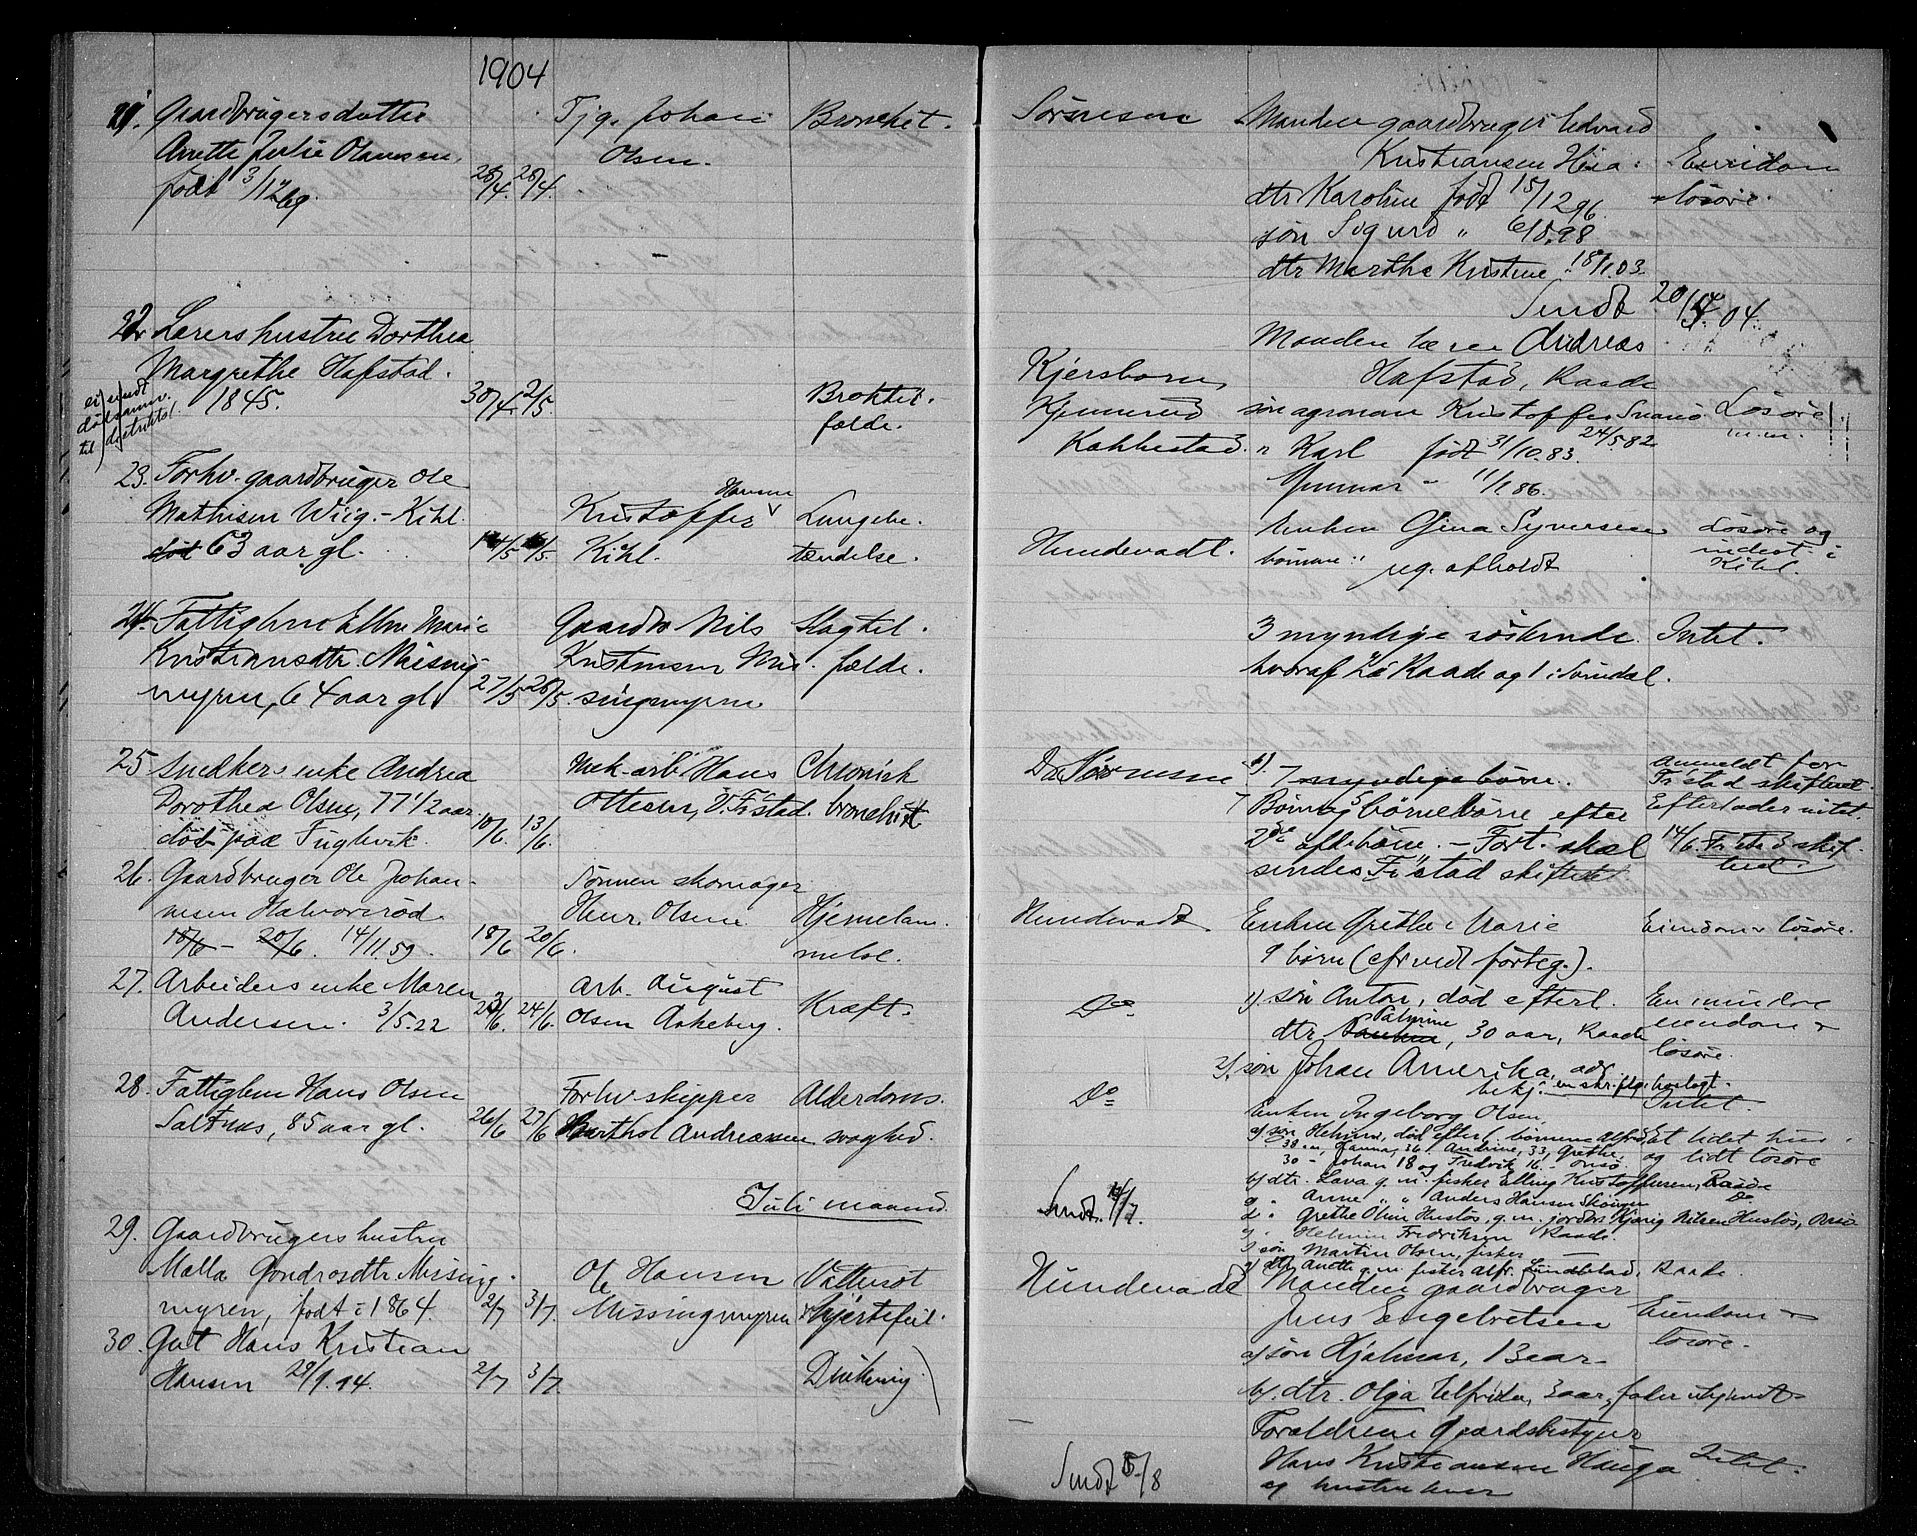 1904
21. Gaardbrugersdatter
Anette Julie Olaussen,
født 3/12 69. 28/4 28/4.
Tjg. Johan
Olsen.
Bronchit.
22. Lærershustru Dorthea
Margrethe Hafstad.
1845. 30/4 2/5
Broktil-
fælde.
ei sendt
dødsanm.
til
23. Forhv. gaardbruger Ole
Mathisen Wiig - Kihl.
63 aar gl. 14/5
Hansen
Kristoffer
Kihl.
Lungebe-
tændelse.
24. Fattiglem Ellen Marie
Kristiansdtr. Missing-
myren, 64 aar gl. 27/5 28/5.
Gaardbr Nils
Kristiansen Mis-
singmyren
Slagtil-
fælde.
25 Snedkers enke Andrea
Dorothea Olsen, 77 1/2 aar
død paa Fuglevik. 10/6. 13/6.
Mek. arb. Hans
Ottesen, F.stad.
Chronisk
bronchit
26. Gaardbruger Ole Johan-
nesen Halvorsrød.
18/6 - 20/6. 14/11.59. 18/6 20/6.
Sønnen skomager
Henr. Olsen
Hjernelam-
melse.
27. Arbeiders enke Maren
Andersen. 3/5.22 24/6.
Arb. August
Olsen Askeberg.
Kræft.
28. Fattiglem Hans Olsen
Saltnes, 85 aar gl. 26/6 27/6
Forhv. skipper
Barthol Andreassen
Alderdoms-
svaghed.
Juli maaned
29. Gaardbrugers hustru
Malla Gundrosdtr. Missing-
myren, født i 1864. 2/7 3/7.
Ole Hansen
Missingmyren
Vattersot
Hjertefeil.
30. Gut Hans Kristian
Hansen 29/9.94. 2/7 3/7.
Drukning
Sørensen
Manden gaardbruger Edvard
Kristiansen
dtr Karoline født 15/12 96.
søn Sigurd " 6/8.98
dtr Martha Kristine 18/1.03.
Eiendom
løsøre.
Sendt 20/5 04.
Manden lærer Andreas
Hafstad, Raade
Kjersborn,
søn agronom Kristoffer 24/5 82
" Karl født 31/10.83.
Gunnar - 11/1.86.
Løsøre
m.m.
Hundevadt.
Enken Gina Syversen
børnene:
reg. afholdt
Løsøre og
indest. i
Kihl.
3 myndige søskende. Intet.
hvoraf 2 i Raade og 1 i
Dr Sørensen
7 myndige børn.
7 Børn og 5 børnebørn efter
2de afd. børn. - Fort. skal
sendes F.stad skifteret
Anmeldt for
F.stad skifteret.
Efterlader intet.
14/6. F.stad skif-
teret.
Hundevadt
Enken Grethe Marie
9 børn (efr ved forteg.).
Eiendom løsøre.
Do
1) søn Anton, død efterl.
dtr Palmine, 30 aar, Raade
2) søn Johan Amerika, adr
bekj.
En mindre
eiendom
løsøre.
Do
Enken Ingeborg Olsen
a) søn Helmer, død efterl. børnene
30 - Johan 18 og Fredrik 16 - Onsø
b) dtr. Lava g.m. fisker Elling Kristoffersen, Raade
c) " Anne " " Anders Hansen
d) " Grethe Oline Husløs, g.m. Nilsen Husløs, Onsø
e) " Helmine Fredriksen Raade
f) søn Martin Olsen, fisker
g) dtr. Anette g.m. fisker Alfr. Lindblad, Raade.
Intet.
Et lidet hus
og lidt løsøre
Sendt 14/7.
Hundevadt
Manden gaardbruger
Jens Engebretsen
a) søn Hjalmar, 13 aar -
b) dtr. Olga Elfrida, 3 aar,
Eiendom
løsøre.
Forældrene Gaardsbestyrer
Hans Kristiansen Hauga
og hustru
Intet.
Sendt 5/8